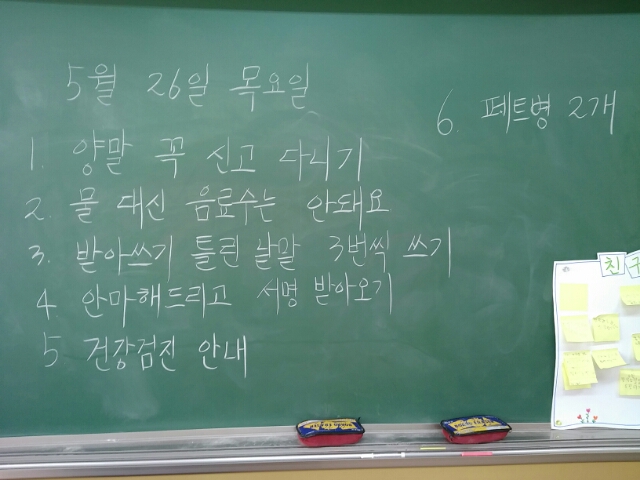 5월 26일 목요일
1. 양말 꼭 신고 다니기
2. 물 대신 음료수는 안돼요
3. 받아쓰기 틀린 낱말 3번씩 쓰기
4. 안마해드리고 서명 받아오기
5 건강검진 안내
6. 페트병 2개
친구